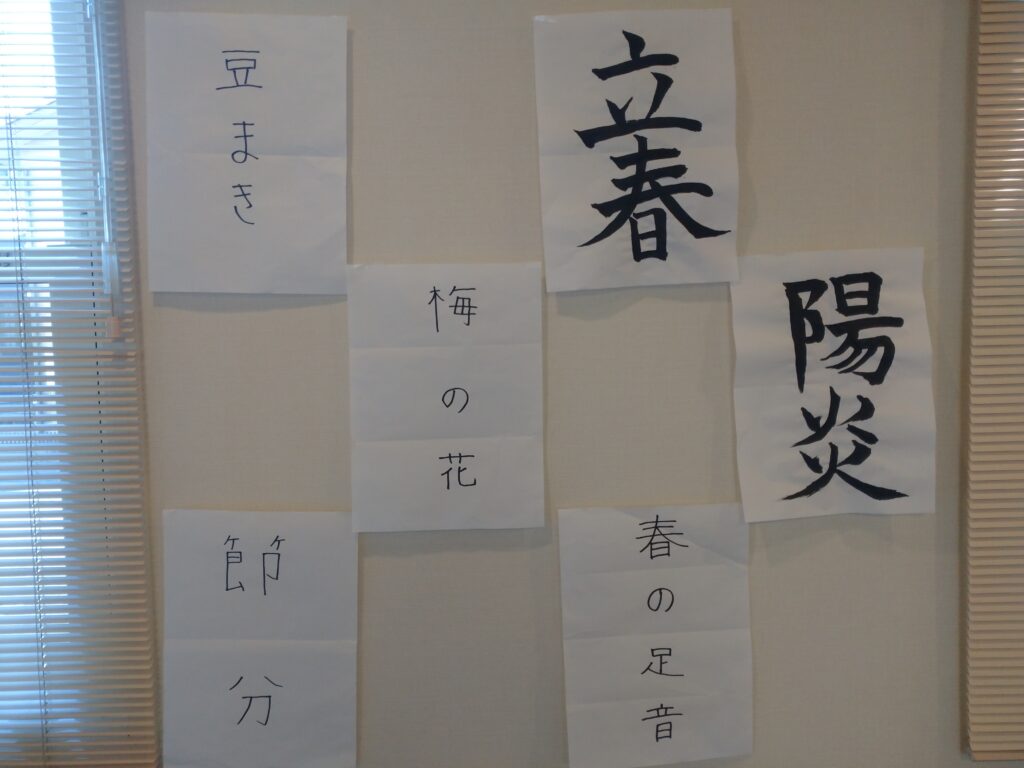 豆まき
立春
梅の花
陽炎
節分
春の足音